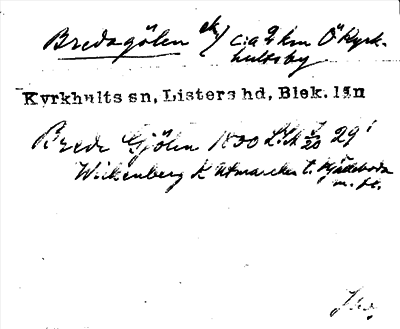 Bredagölen ek/ c:a 2 km Ö Kyrk-
hultsby
Kyrkhults sn, Listers hd, Blek. län
Brede Gjölen 1830 20 29
Wickenberg K Utmarcken t.
m. fl.